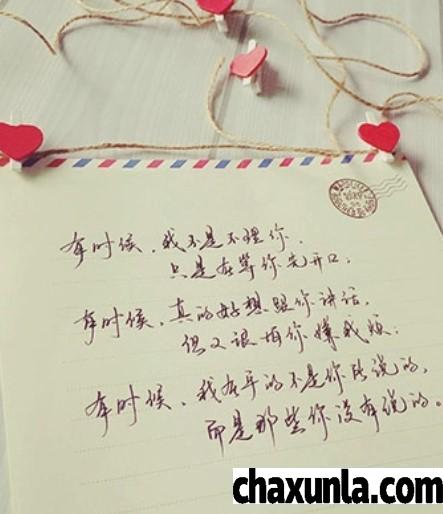 有时候,我不是不理你,
只是在等你先开口;
有时候,真的好想跟你讲话,
但又很怕你嫌我烦;
有时候,我在乎的不是你所说的,
而是那些你没有说的。
chaxunla.com